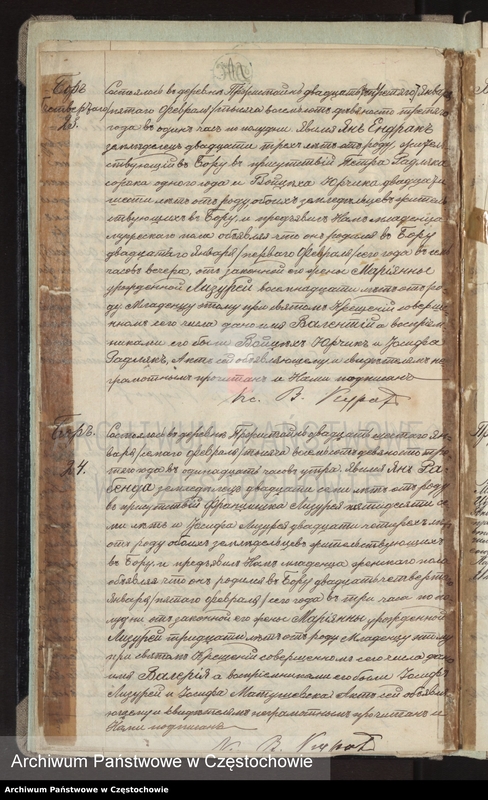 Боръ
23.
Состоялось въ деревнѣ Пржистайнь двадцать Января
пятаго Февраля тысяча восемьсотъ девяносто третьяго
года въ одинъ часъ по полудни. Явился Янъ Ендракъ
земледѣлецъ двадцати трехъ лѣтъ отъ роду житель
ствующій въ Бору въ присутствіи Петра
сорока одного года и Войцѣха Юрчика двадцати
лѣтъ отъ роду обоихъ земледѣльцевъ житель
ствующихъ въ Бору, и предъявилъ Намъ младенца
мужескаго пола объявляя что онъ родился въ Бору
двадцатаго Января /перваго Февраля/ сего года въ семь
часовъ вечера, отъ законной его жены Маріянны
урожденной Мизурей восемнадцати лѣтъ отъ ро
ду. Младенцу этому при святомъ Крещеніи соверше
нномъ сего числа дано имя Валентій а воспріем
никами его были Войцѣхъ Юрчикъ и Юзефа
Актъ сей объявляющему и свидѣтелямъ не
грамотнымъ прочитанъ и Нами подписанъ
Кс. В. Кура
Боръ.
24.
Состоялось въ деревнѣ Пржистайнь двадцать шестаго Ян
варя Февраля тысяча восемьсотъ девяносто тре
тьяго года въ одинадцать часовъ утра. Явился Янъ Ра
бенда земледѣлецъ двадцати семи лѣтъ отъ роду
въ присутствіи Францишка Мизурея пятидесяти се
ми лѣтъ и Юзефа Мизурея двадцати четырехъ лѣтъ
отъ роду обоихъ земледѣльцевъ жительствующихъ
въ Бору и предъявилъ Намъ младенца женскаго пола
объявляя что онъ родился въ Бору двадцать четвертаго
Января /пятаго Февраля/ сего года въ три часа по по
лудни отъ законной его жены Маріянны урожденной
Мизурей тридцати лѣтъ отъ роду Младенцу этому
при святомъ Крещеніи совершенномъ сего числа дано
имя Валерія а воспріемниками его были Юзефъ
Мизурей и Юзефа Матушевска Актъ сей объявля
ющему и свидѣтелямъ неграмотнымъ прочитанъ и
Нами подписанъ
Кс. В. Кура
Archiwum Państwowe w Częstochowie
Archiwum Państwowe w Częstochowie